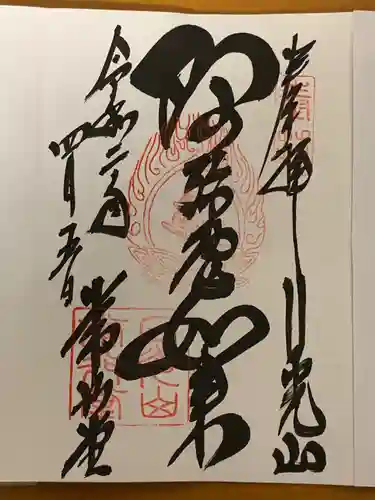 奉拝 日光山
阿弥陀如来
令和二年
四月五日 常行堂